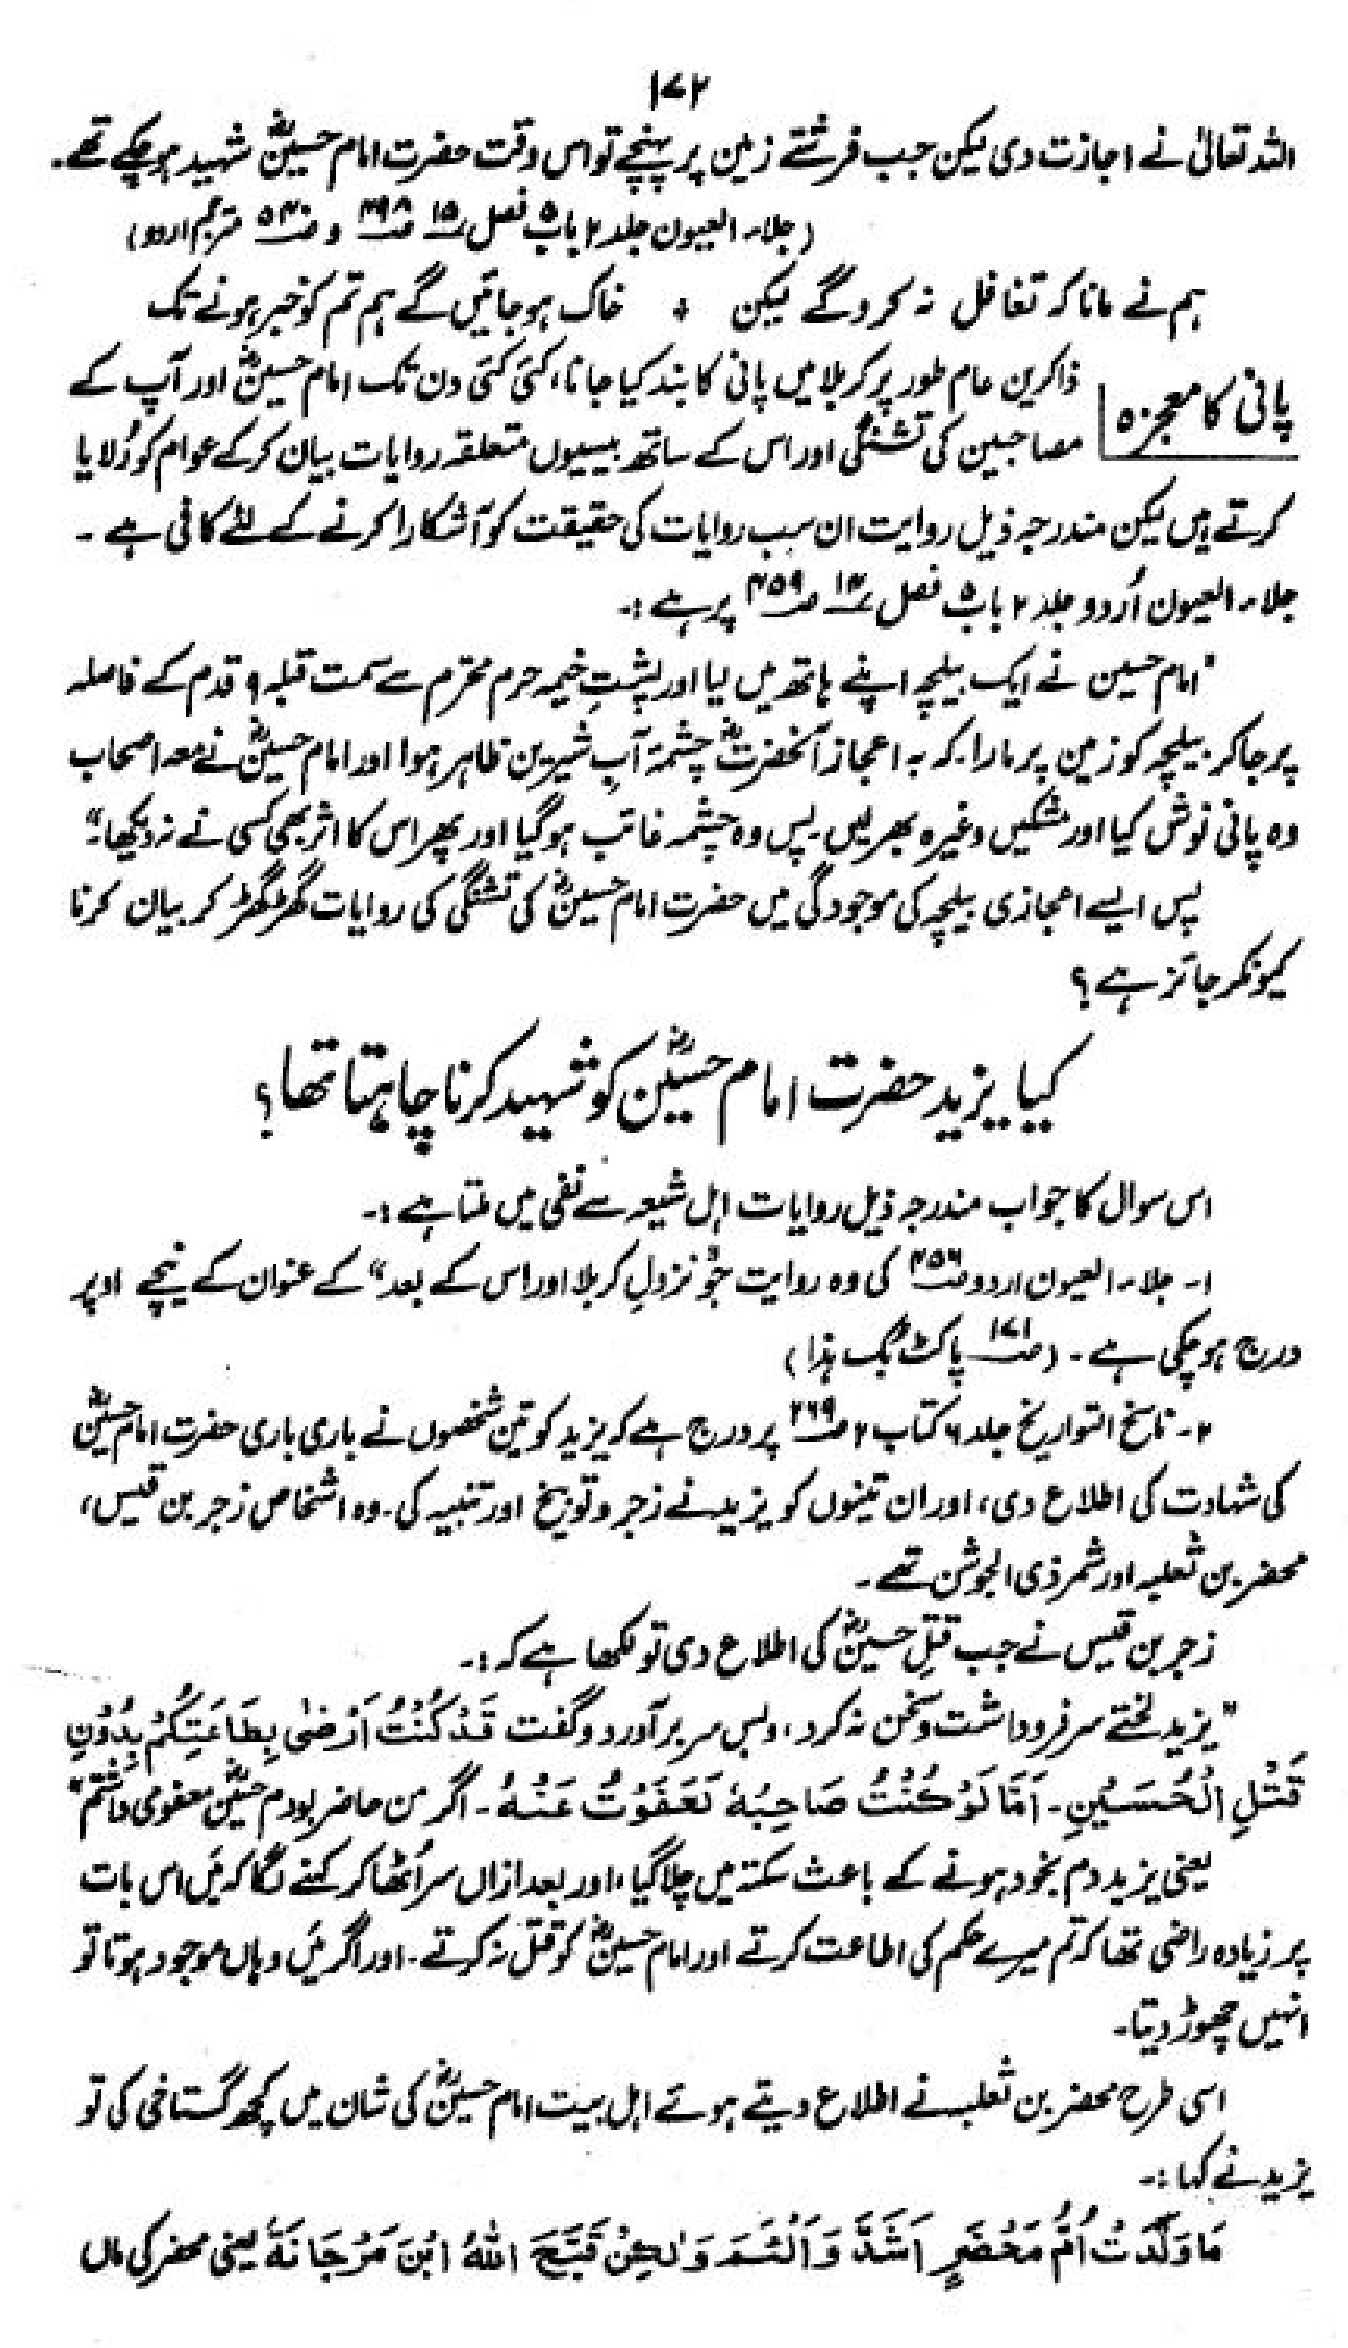 ۱۷۲
اللہ تعالیٰ نے اجازت دی لیکن جب فرشتے زمین پر پہنچے تو اس وقت حضرت امام حسینؓ شہید ہو چکے تھے۔
(جلاء العیون جلد ۲ باب ۵ فصل ۱۵ ص ۴۹۸ و ص ۵۴۰ مترجم اردو)
ہم نے مانا کہ تغافل نہ کرو گے لیکن ٭ خاک ہو جائیں گے ہم تم کو خبر ہونے تک
پانی کا معجزہ
ذاکرین عام طور پر کربلا میں پانی کا بند کیا جانا، کئی کئی دن تک امام حسینؓ اور آپ کے
مصاحبین کی تشنگی اور اس کے ساتھ بیسیوں متعلقہ روایات بیان کر کے عوام کو رُلایا
کرتے ہیں لیکن مندرجہ ذیل روایت ان سب روایات کی حقیقت کو آشکارا کرنے کے لئے کافی ہے ۔
جلاء العیون اُردو جلد ۲ باب ۵ فصل ۱۴ ص ۴۵۹ پر ہے :۔
"امام حسین نے ایک بیلچہ اپنے ہاتھ میں لیا اور پشتِ خیمہ حرم محترم سے سمت قبلہ ۹ قدم کے فاصلہ
پر جا کر بیلچہ کو زمین پر مارا۔ کہ بہ اعجاز آنحضرتؓ چشمۂ آبِ شیرین ظاہر ہوا اور امام حسینؓ نے معہ اصحاب
وہ پانی نوش کیا اور مشکیں وغیرہ بھر لیں۔ پس وہ چشمہ غائب ہو گیا اور پھر اس کا اثر بھی کسی نے نہ دیکھا۔"
پس ایسے اعجازی بیلچہ کی موجودگی میں حضرت امام حسینؓ کی تشنگی کی روایات گھڑ گھڑ کر بیان کرنا
کیونکر جائز ہے؟
کیا یزید حضرت امام حسینؓ کو شہید کرنا چاہتا تھا؟
اس سوال کا جواب مندرجہ ذیل روایات اہل شیعہ سے نفی میں ملتا ہے :۔
۱۔ جلاء العیون اردو ص ۴۵۶ کی وہ روایت جو "نزولِ کربلا اور اس کے بعد" کے عنوان کے نیچے اوپر
درج ہو چکی ہے ۔ (ص ۱۷۱ پاکٹ بک ہذا)
۲۔ ناسخ التواریخ جلد ۶ کتاب ۲ ص ۲۶۹ پر درج ہے کہ یزید کو تین شخصوں نے باری باری حضرت امام حسینؓ
کی شہادت کی اطلاع دی، اور ان تینوں کو یزید نے زجر و توبیخ اور تنبیہ کی۔ وہ اشخاص زجر بن قیس،
محضر بن ثعلبہ اور شمر ذی الجوشن تھے ۔
زجر بن قیس نے جب قتلِ حسینؓ کی اطلاع دی تو لکھا ہے کہ :۔
"یزید لختے سر فرو داشت و سخن نہ کرد، و پس سر بر آورد و گفت قَدْ كُنْتُ اَرْضٰی بِطَاعَتِكُمْ بِدُوْنِ
قَتْلِ الْحُسَیْنِ۔ اَمَّا لَوْ كُنْتُ صَاحِبُهٗ لَعَفَوْتُ عَنْهُ۔ اگر من حاضر بودم حسینؓ معفو می داشتم"
یعنی یزید دم بخود ہونے کے باعث سکتہ میں چلا گیا، اور بعد ازاں سر اُٹھا کر کہنے لگا کہ میں اس بات
پر زیادہ راضی تھا کہ تم میرے حکم کی اطاعت کرتے اور امام حسینؓ کو قتل نہ کرتے۔ اور اگر میں وہاں موجود ہوتا تو
انہیں چھوڑ دیتا۔
اسی طرح محضر بن ثعلبہ نے اطلاع دیتے ہوئے اہل بیت امام حسینؓ کی شان میں کچھ گستاخی کی تو
یزید نے کہا :۔
مَا وَلَدَتْ اُمُّ مَحْضَرٍ اَشَدَّ وَ اَلْئَمَ وَ لٰكِنْ قَبَّحَ اللّٰهُ ابْنَ مَرْجَانَةَ یعنی محضر کی ماں